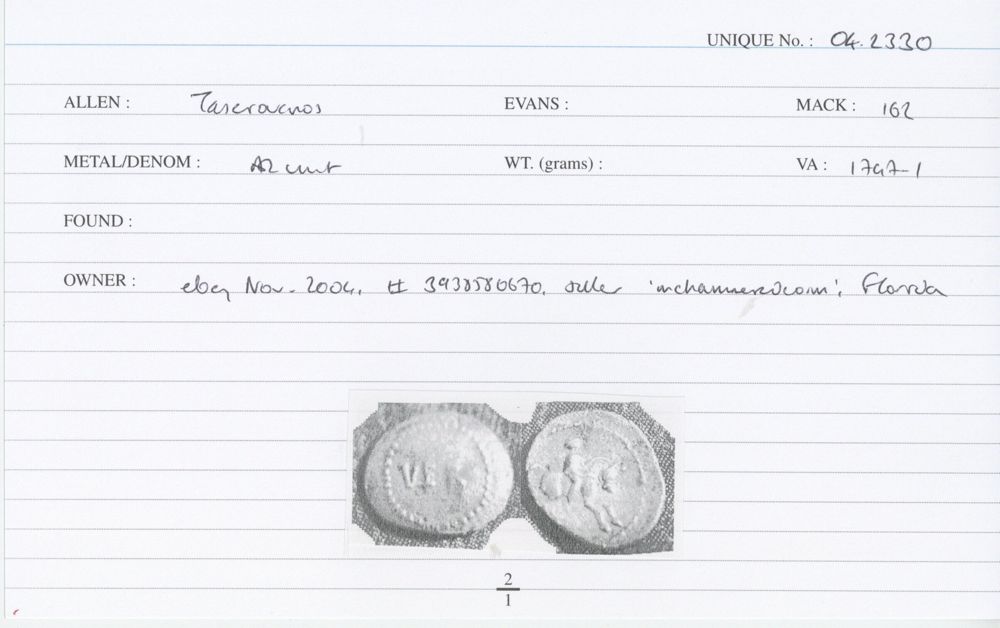 UNIQUE No. : 04.2330
ALLEN : Tasciovanos EVANS : MACK : 162
METAL/DENOM : AR unit WT. (grams) : VA : 1747-1
FOUND :
OWNER : ebay Nov. 2004, # 3938580670, seller Florida
VE
2
1